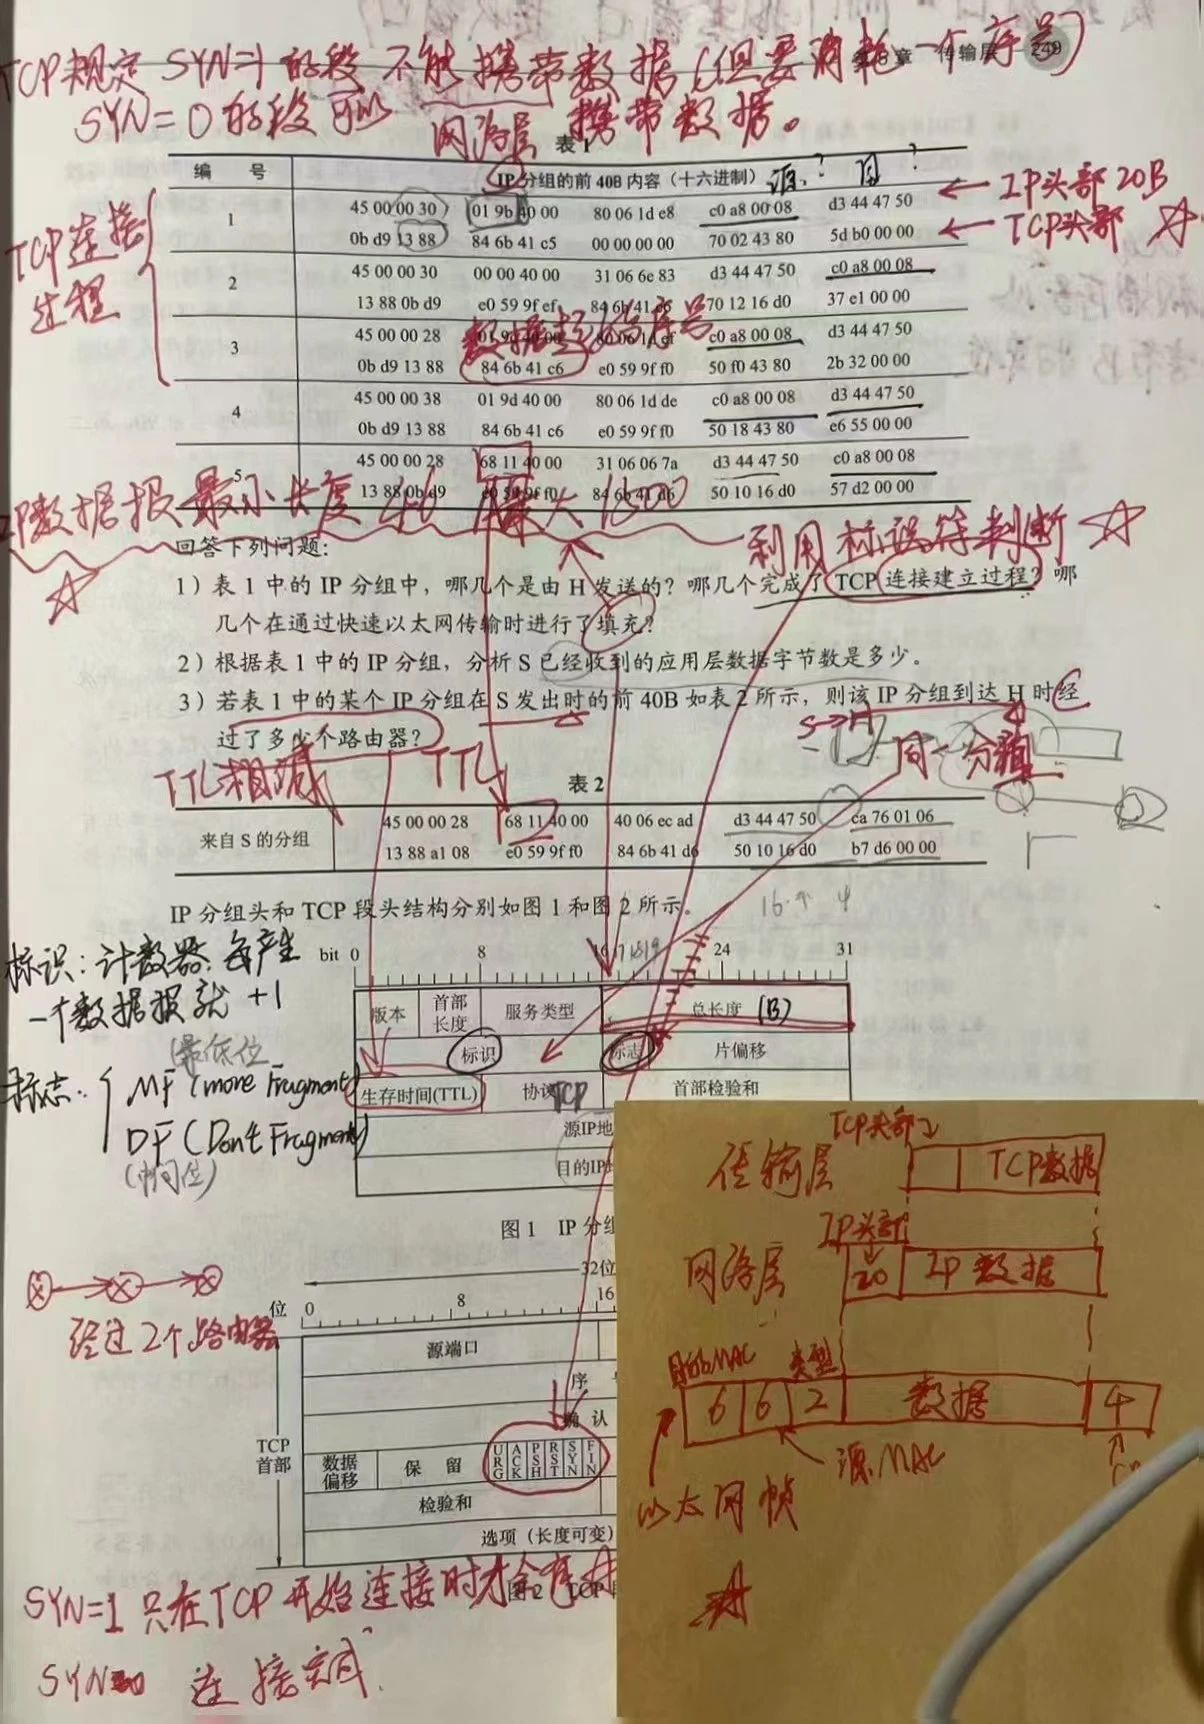 TCP规定 SYN=1的段 不能携带数据(但要消耗一个序号)
传输层 249
SYN=0的段可以 携带数据。
网络层
表1
编 号 IP分组的前 40B 内容(十六进制) 源? 目?
1 45 00 00 30 01 9b 40 00 80 06 1d e8 c0 a8 00 08 d3 44 47 50
0b d9 13 88 84 6b 41 c5 00 00 00 00 70 02 43 80 5d b0 00 00
← IP头部 20B
← TCP头部
TCP连接
过程
2 45 00 00 30 00 00 40 00 31 06 6e 83 d3 44 47 50 c0 a8 00 08
13 88 0b d9 e0 59 9f ef 84 6b 41 c6 70 12 16 d0 37 e1 00 00
数据起始序号
3 45 00 00 28 01 9c 40 00 80 06 1d ef c0 a8 00 08 d3 44 47 50
0b d9 13 88 84 6b 41 c6 e0 59 9f f0 50 f0 43 80 2b 32 00 00
4 45 00 00 38 01 9d 40 00 80 06 1d de c0 a8 00 08 d3 44 47 50
0b d9 13 88 84 6b 41 c6 e0 59 9f f0 50 18 43 80 e6 55 00 00
5 45 00 00 28 68 11 40 00 31 06 06 7a d3 44 47 50 c0 a8 00 08
13 88 0b d9 e0 59 9f f0 84 6b 41 d6 50 10 16 d0 57 d2 00 00
IP数据报最小长度 46 最大1500
利用标识符判断
回答下列问题:
1)表 1 中的 IP 分组中,哪几个是由 H 发送的?哪几个完成了 TCP 连接建立过程?哪
几个在通过快速以太网传输时进行了填充?
2)根据表 1 中的 IP 分组,分析 S 已经收到的应用层数据字节数是多少。
3)若表 1 中的某个 IP 分组在 S 发出时的前 40B 如表 2 所示,则该 IP 分组到达 H 时经
过了多少个路由器?
S→H
同一分组
TTL相减
TTL
表2
来自 S 的分组 45 00 00 28 68 11 40 00 40 06 ec ad d3 44 47 50 ca 76 01 06
13 88 a1 08 e0 59 9f f0 84 6b 41 d6 50 10 16 d0 b7 d6 00 00
IP 分组头和 TCP 段头结构分别如图 1 和图 2 所示。
标识:计数器,每产生
一个数据报就+1
bit 0 8 16 17 18 19 24 31
版本 首部长度 服务类型 总长度 (B)
标识 标志 片偏移
生存时间(TTL) 协议 TCP 首部检验和
源IP地
目的IP地
(最低位
标志: MF(more Fragment)
DF(Don't Fragment)
(中间位)
图 1 IP 分组
经过2个路由器
32位
位 0 8 16
源端口
序 号
确 认
TCP
首部
数据偏移 保 留 URG ACK PSH RST SYN FIN
检验和
选项(长度可变)
图2 TCP
SYN=1只在TCP开始连接时才会有
SYN=0 连接完成.
TCP头部
传输层 TCP数据
IP头部
网络层 20 IP数据
目的MAC 类型
6 6 2 数据 4
源MAC
以太网帧